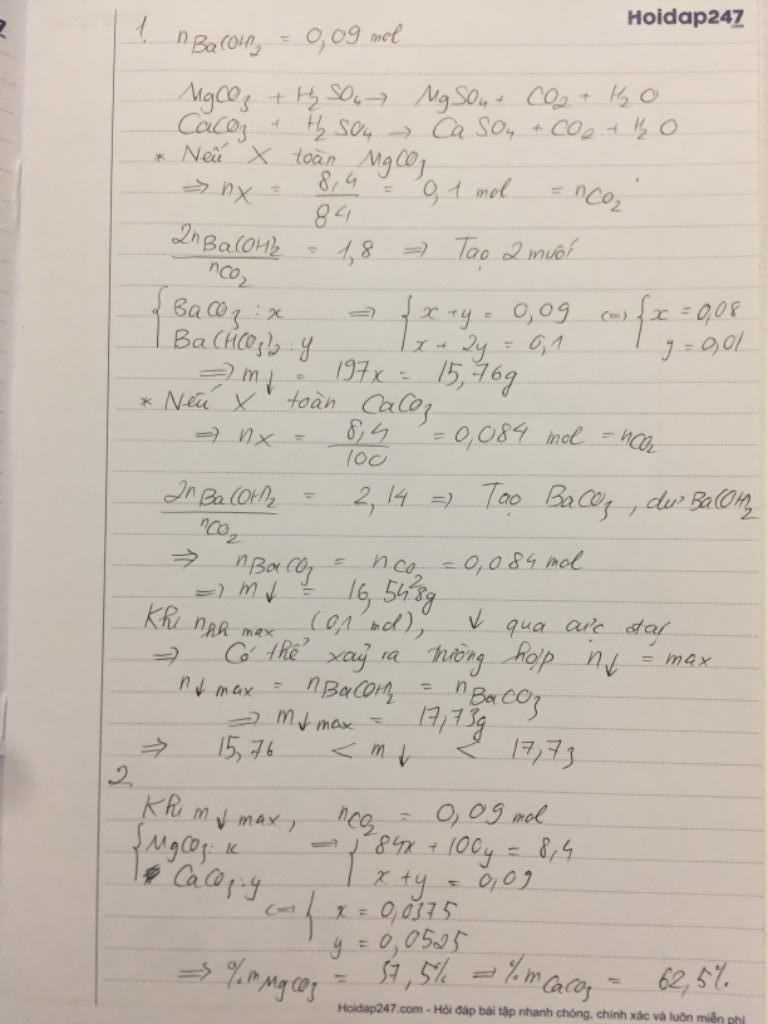 Hoidap247
1. nBa(OH)2 = 0,09 mol
MgCO3 + H2SO4 → MgSO4 + CO2 + H2O
CaCO3 + H2SO4 → CaSO4 + CO2 + H2O
* Nếu X toàn MgCO3
⇒ nX = 8,4/84 = 0,1 mol = nCO2
2nBa(OH)2/nCO2 = 1,8 ⇒ Tạo 2 muối
{ BaCO3 : x ⇒ { x + y = 0,09 ⇔ { x = 0,08
Ba(HCO3)2 : y x + 2y = 0,1 y = 0,01
⇒ m↓ = 197x = 15,76g
* Nếu X toàn CaCO3
⇒ nX = 8,4/100 = 0,084 mol = nCO2
2nBa(OH)2/nCO2 = 2,14 ⇒ Tạo BaCO3, dư Ba(OH)2
⇒ nBaCO3 = nCO2 = 0,084 mol
⇒ m↓ = 16,548g
Khi nhh max (0,1 mol), ↓ qua cực đại
⇒ Có thể xảy ra trường hợp n↓ = max
n↓ max = nBa(OH)2 = nBaCO3
⇒ m↓ max = 17,73g
⇒ 15,76 < m↓ < 17,73
2.
Khi m↓ max, nCO2 = 0,09 mol
{ MgCO3 : x ⇒ { 84x + 100y = 8,4
CaCO3 : y x + y = 0,09
⇔ { x = 0,0375
y = 0,0525
⇒ %mMgCO3 = 37,5% ⇒ %mCaCO3 = 62,5%
Hoidap247.com - Hỏi đáp bài tập nhanh chóng, chính xác và luôn miễn phí